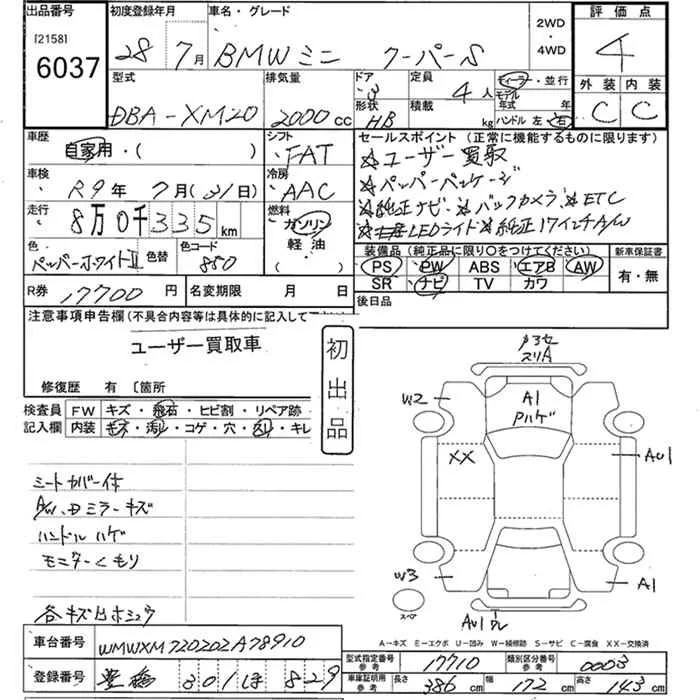 出品番号 初度登録年月 車名・グレード 2WD・4WD 評価点
[2158]
6037 28年 7月 BMWミニ クーパーS 4
型式 排気量 ドア 定員 ディーラー・並行 外装 内装
DBA-XM20 2000cc 3 4人 モデル年式 年 C C
形状 HB 積載 kg ハンドル 左・右
車歴 自家用・( ) シフト FAT セールスポイント (正常に機能するものに限ります)
☆ユーザー買取
車検 R9年 7月(31日) 冷房 AAC ☆ペッパーパッケージ
走行 8万0千335km 燃料 ガソリン 軽油 ☆純正ナビ ☆バックカメラ ☆ETC
☆LEDライト ☆純正17インチA/W
色 ペッパーホワイトII 色替 色コード 850
装備品 (純正品に限り〇をつけてください) 新車保証書
PS PW ABS エアB AW 有・無
SR ナビ TV カワ
R券 17700円 名変期限 月 日 後日品
注意事項申告欄 (不具合内容等は具体的に記入して下
ユーザー買取車
初出品
修復歴 有 〔箇所
検査員記入欄 FW キズ・飛石・ヒビ割・リペア跡・
内装 キズ・汚レ・コゲ・穴・スレ・キレ
シートカバー付
A/W.Dミラーキズ
ハンドルハゲ
モニターくもり
スリA
W2 A1 Pハゲ
XX AU1
W3 A1
スペア AU1
A-キズ E-エクボ U-凹み W-補修跡 S-サビ C-腐食 XX-交換済
車台番号 WMWXM720202A78910
型式指定番号 参考 17710 類別区分番号 参考 0003
登録番号 豊橋 301 ほ 829
車庫証明用 参考 長さ 386cm 幅 172cm 高さ 143cm